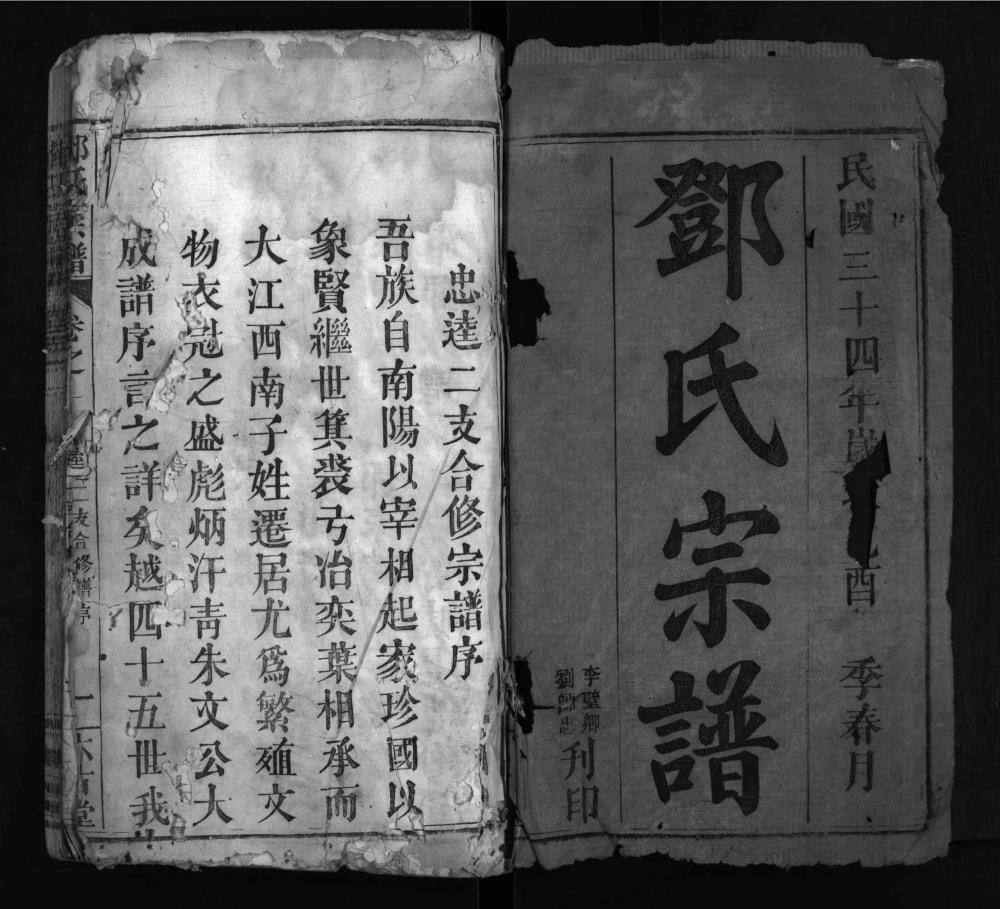 民國三十四年歲酉 季春月
鄧氏宗譜
李璧卿
劉忠
刊印
忠逵二支合修宗譜序
吾族自南陽以宰相起家珍國以
象賢繼世箕裘弓冶奕葉相承而
大江西南子姓遷居尤爲繁殖文
物衣冠之盛彪炳汗靑朱文公大
成譜序言之詳矣越四十五世我
鄧氏宗譜
卷之一
逵二支合修譜序
一